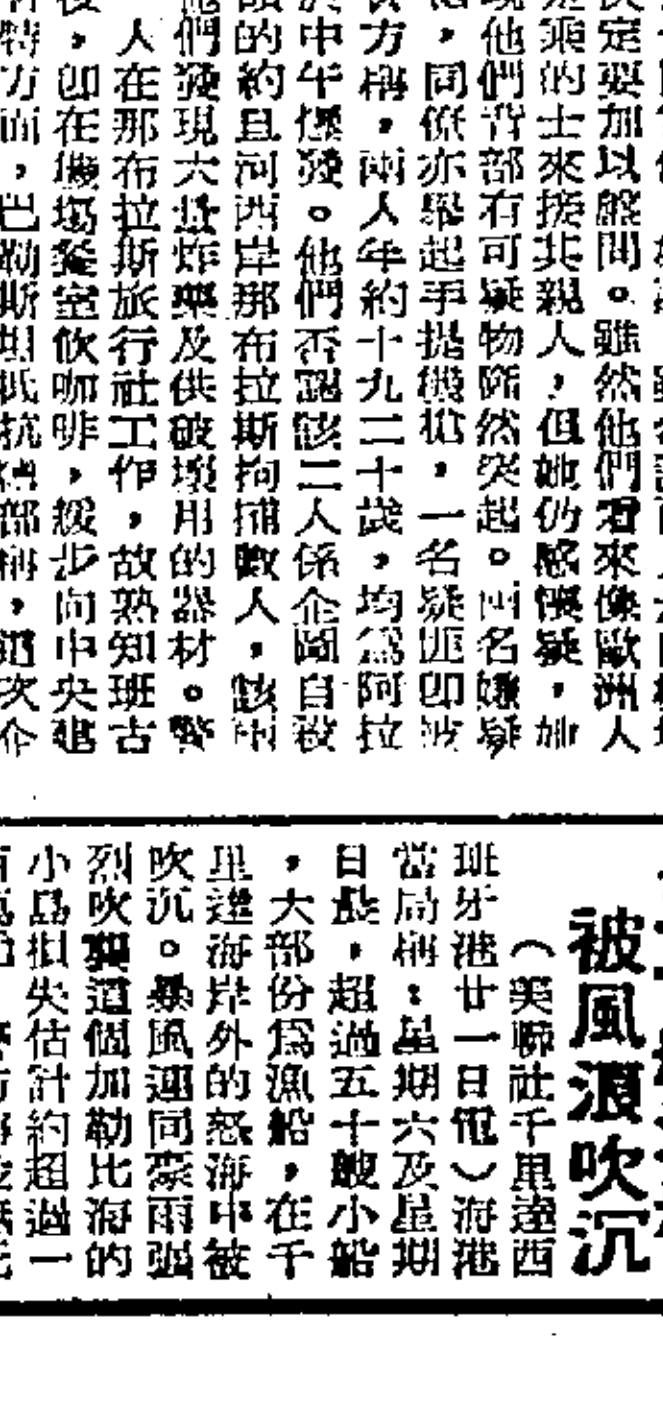 定要加以盤問。雖然他們看來像歐洲人
乘的士來接其親人，但她仍感懷疑，她
他們背部有可疑物隆然突起。兩名嫌疑
，同僚亦舉起手提機槍，一名疑匪即被
方稱，兩人年約十九二十歲，均為阿拉
中午爆發。他們否認該二人係企圖自殺
的約旦河西岸那布拉斯拘捕數人，該兩
們發現六批炸藥及供破壞用的器材。警
人在那布拉斯旅行社工作，故熟知班古
，即在機場餐室飲咖啡，緩步向中央建
特方面，巴勒斯坦抵抗 部稱，這次企
被風浪吹沉
（美聯社千里達西
班牙港廿一日電）海港
當局稱：星期六及星期
日晨，超過五十艘小船
，大部份為漁船，在千
里達海岸外的怒海中被
吹沉。暴風連同豪雨強
烈吹襲這個加勒比海的
小島損失估計約超過一